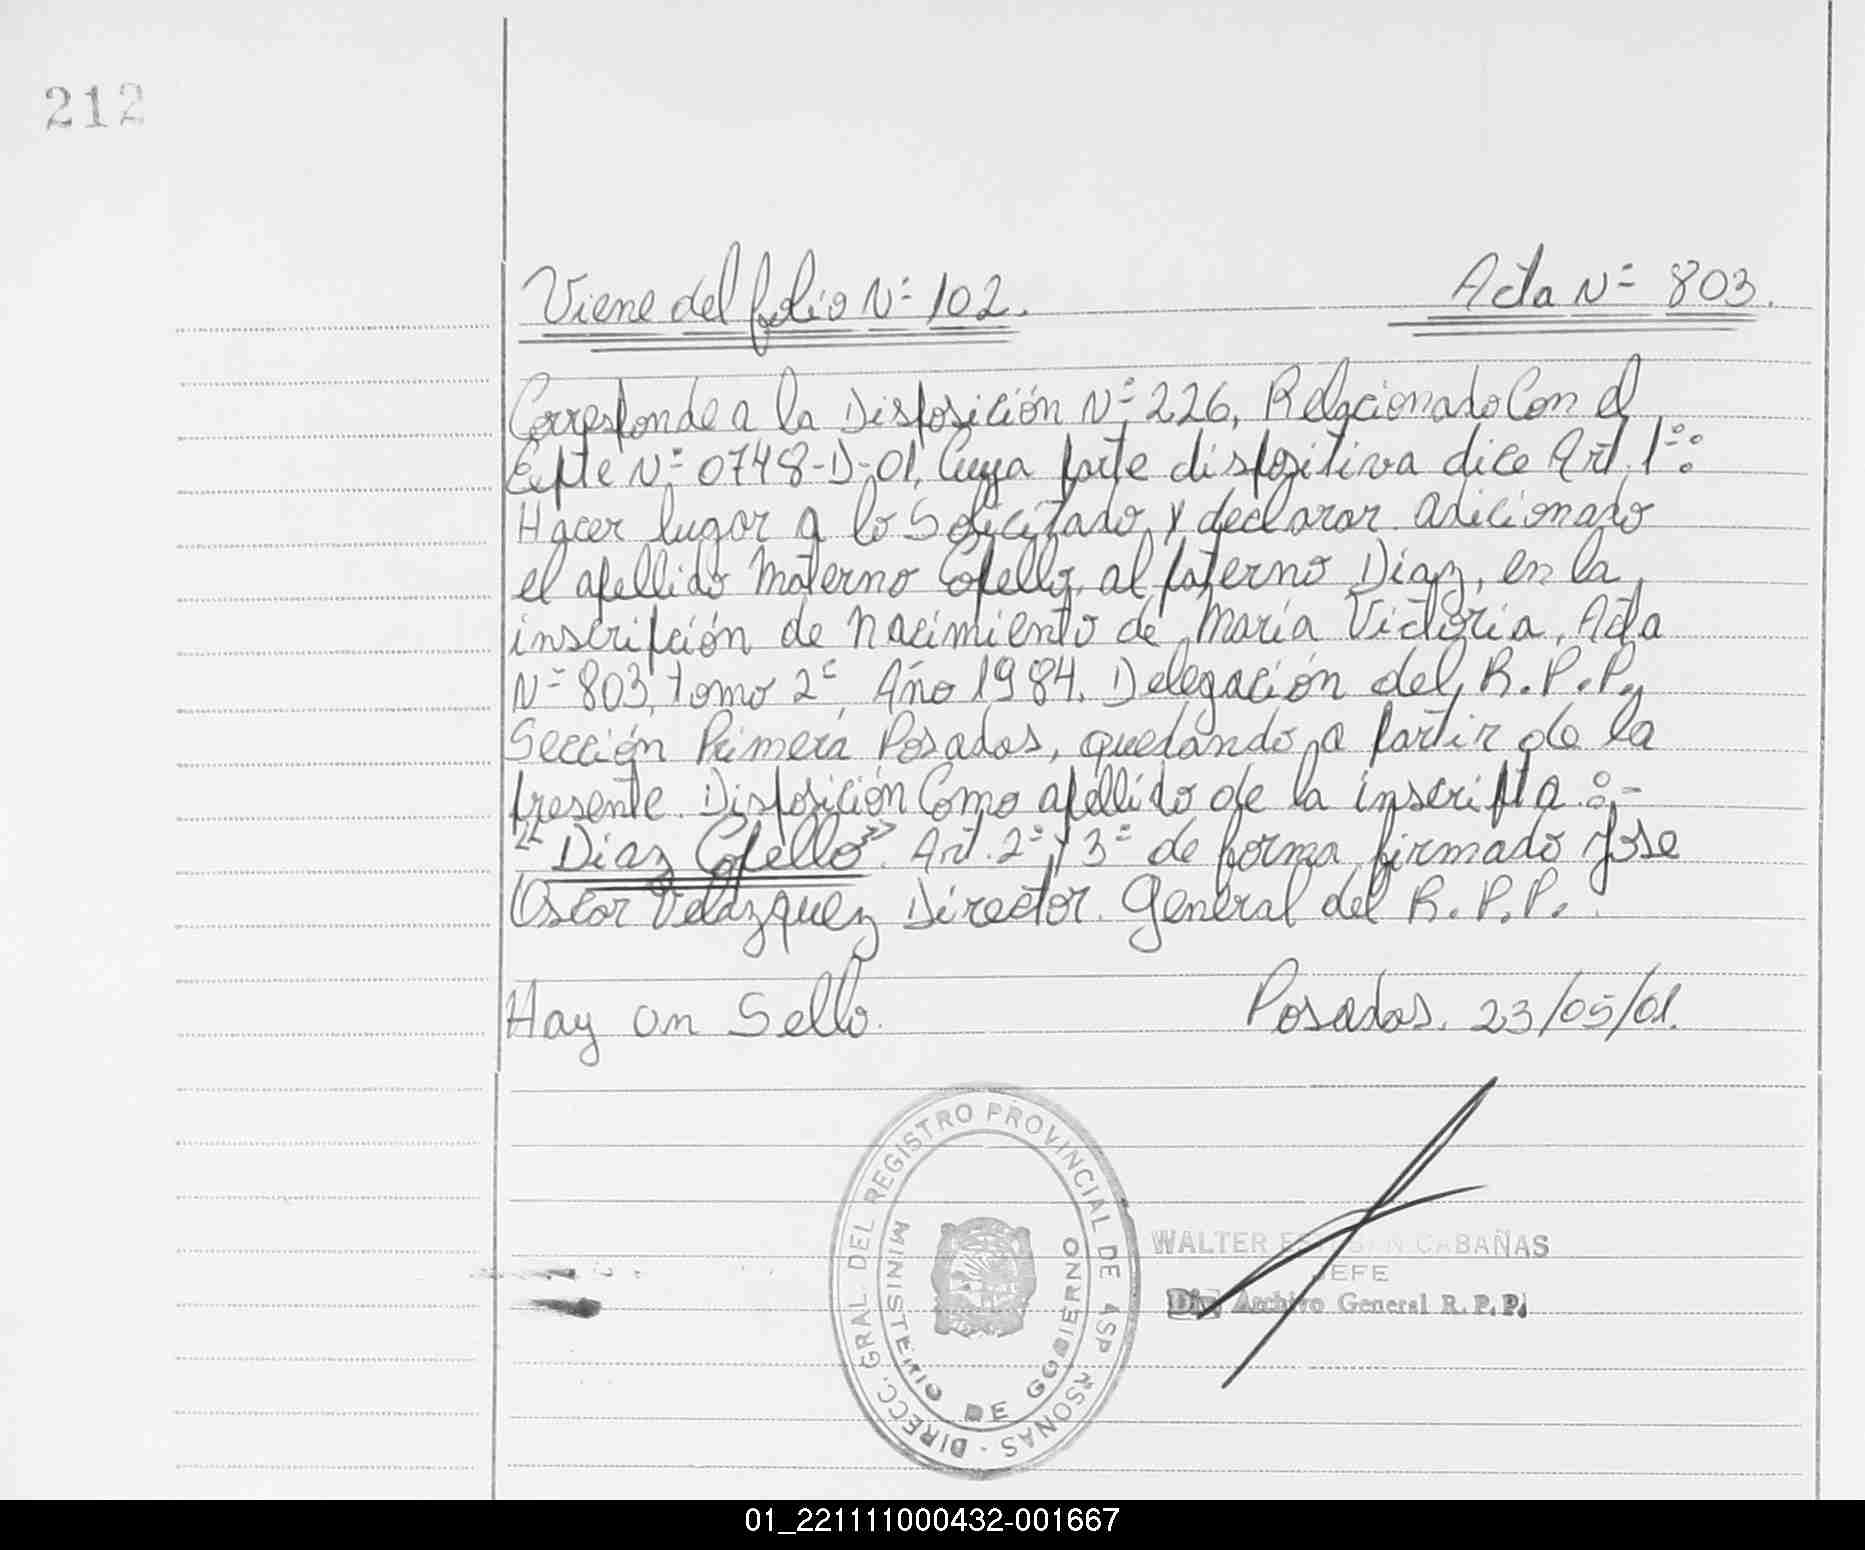 212
Viene del folio Nº 102. Acta Nº 803.
Corresponde a la Disposición Nº 226, Relacionado Con el
Expte Nº 0748-D-01, Cuya parte dispositiva dice Art. 1º:
Hacer lugar a lo Solicitado, y declarar adicionado
el apellido Materno Copello, al paterno Diaz, en la
inscripción de Nacimiento de María Victoria, Acta
Nº 803, tomo 2º, Año 1984. Delegación del R.P.P.,
Sección Primera Posadas, quedando a partir de la
presente Disposición Como apellido de la inscripta :-
"Diaz Copello". Art. 2º y 3º de forma firmado Jose
Oscar Velázquez Director General del R.P.P..
Hay un Sello. Posadas. 23/05/01.
DIRECC. GRAL. DEL REGISTRO PROVINCIAL DE
MINISTERIO DE GOBIERNO
WALTER ESTEBAN CABAÑAS
JEFE
Archivo General R. P. P.
01_221111000432-001667